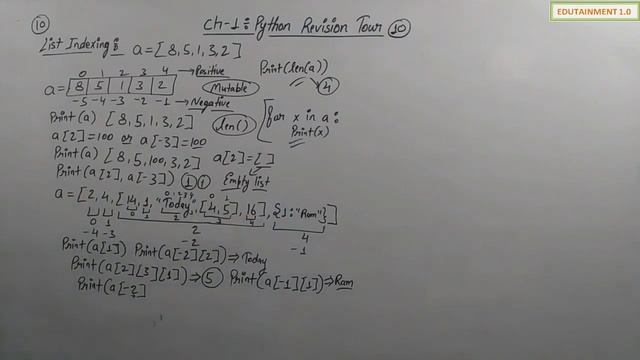 EDUTAINMENT 1.0
10 Ch-1: Python Revision Tour 10
List Indexing: a=[8,5,1,3,2]
0 1 2 3 4 → Positive Print(len(a))
a= 8 5 1 3 2 Mutable 4
-5 -4 -3 -2 -1 → Negative
Print(a) [8,5,1,3,2] len() for x in a:
Print(x)
a[2]=100 or a[-3]=100
Print(a) [8,5,100,3,2] a[2]=[ ]
Print(a[2], a[-3]) 1 1 Empty list
0 1 2 3 4 0 1
a=[2,4,[14,1,"Today",[4,5],16],{1:"Ram"}]
0 1 2 3 4
0 1 2 4
-4 -3 -2 -1
Print(a[1]) Print(a[-2][2]) ⇒ Today
Print(a[2][3][1]) ⇒ 5 Print(a[-1][1]) ⇒ Ram
Print(a[-2]